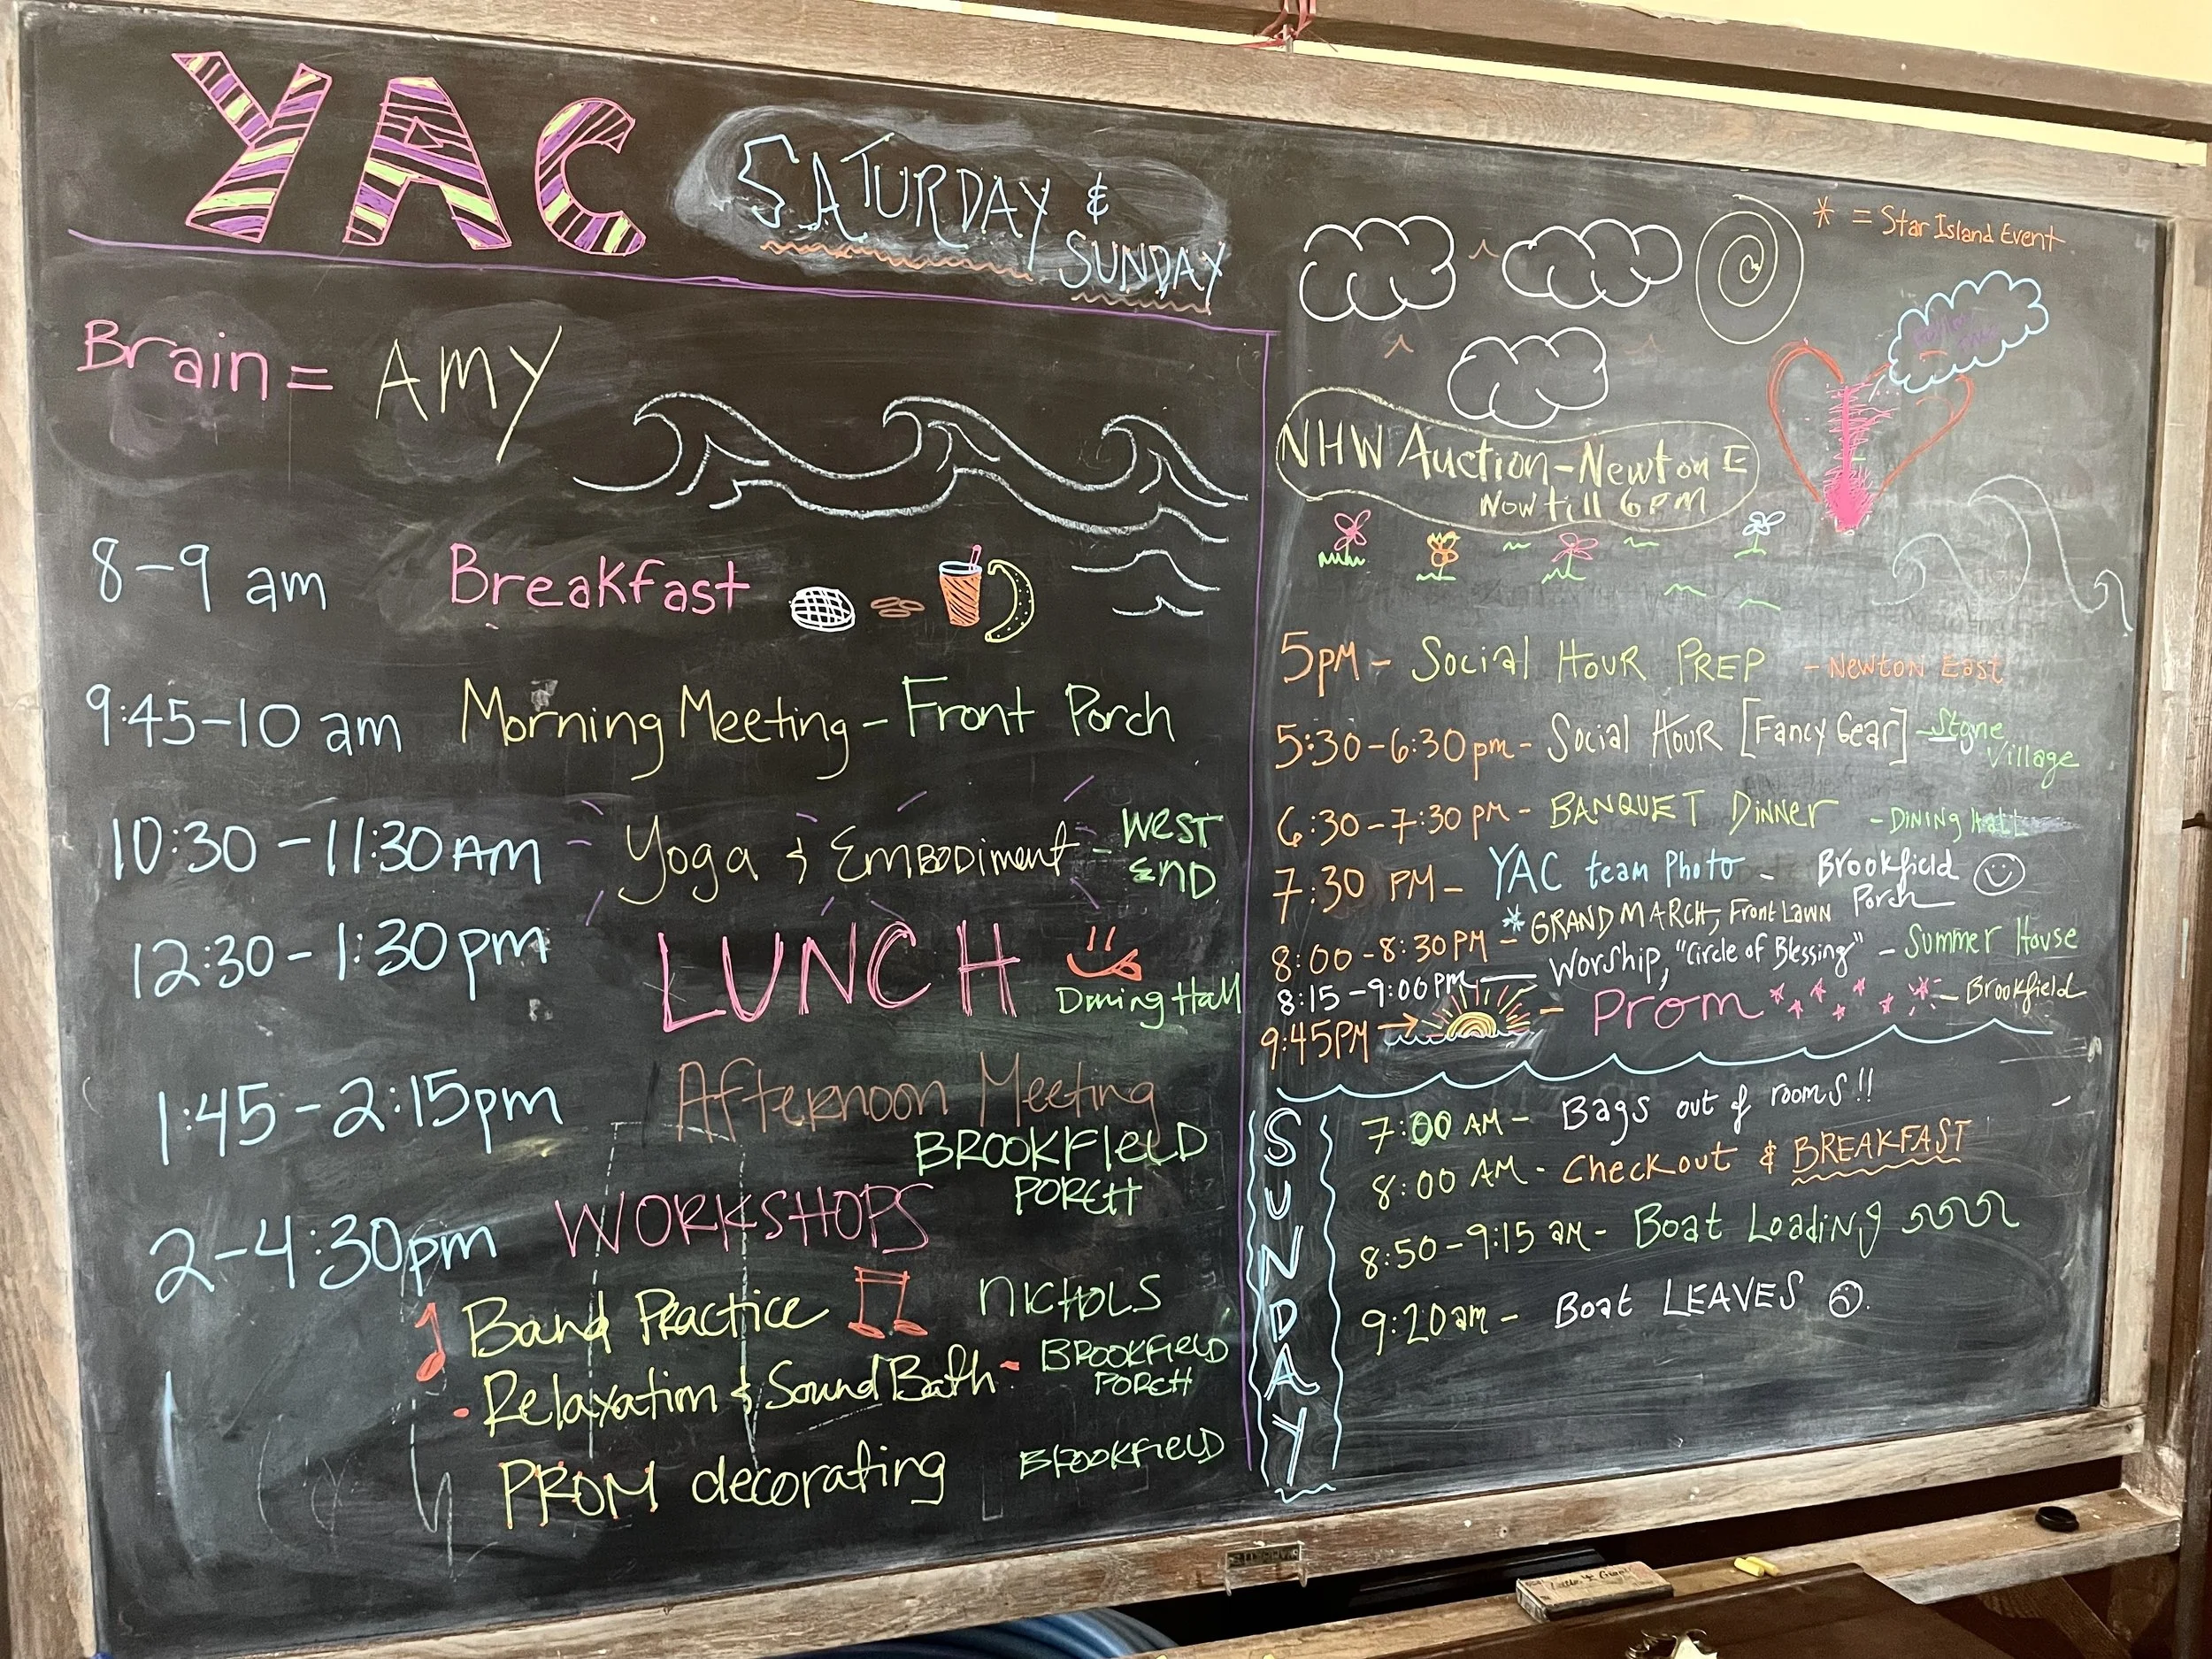 YAC SATURDAY &
SUNDAY
Brain = AMY
8-9 am Breakfast
9:45-10 am Morning Meeting - Front Porch
10:30-11:30 AM Yoga & Embodiment - West
End
12:30-1:30pm LUNCH
Dining Hall
1:45-2:15pm Afternoon Meeting
BROOKFIELD
PORCH
2-4:30pm WORKSHOPS
Band Practice NICHOLS
- Relaxation & Sound Bath - BROOKFIELD
PORCH
PROM decorating BROOKFIELD
* = Star Island Event
NHW Auction - Newton E
Now till 6PM
5PM - Social Hour PREP - Newton East
5:30-6:30pm - Social Hour [Fancy Gear] - Stone
Village
6:30-7:30 PM - BANQUET Dinner - Dining Hall
7:30 PM - YAC team Photo - Brookfield
Porch
8:00-8:30 PM - * GRAND MARCH, Front Lawn
8:15-9:00 PM - Worship, "Circle of Blessing" - Summer House
9:45PM → - Prom - Brookfield
SUNDAY
7:00 AM - Bags out of rooms!!
8:00 AM - Checkout & BREAKFAST
8:50-9:15 am - Boat Loading
9:20am - Boat LEAVES